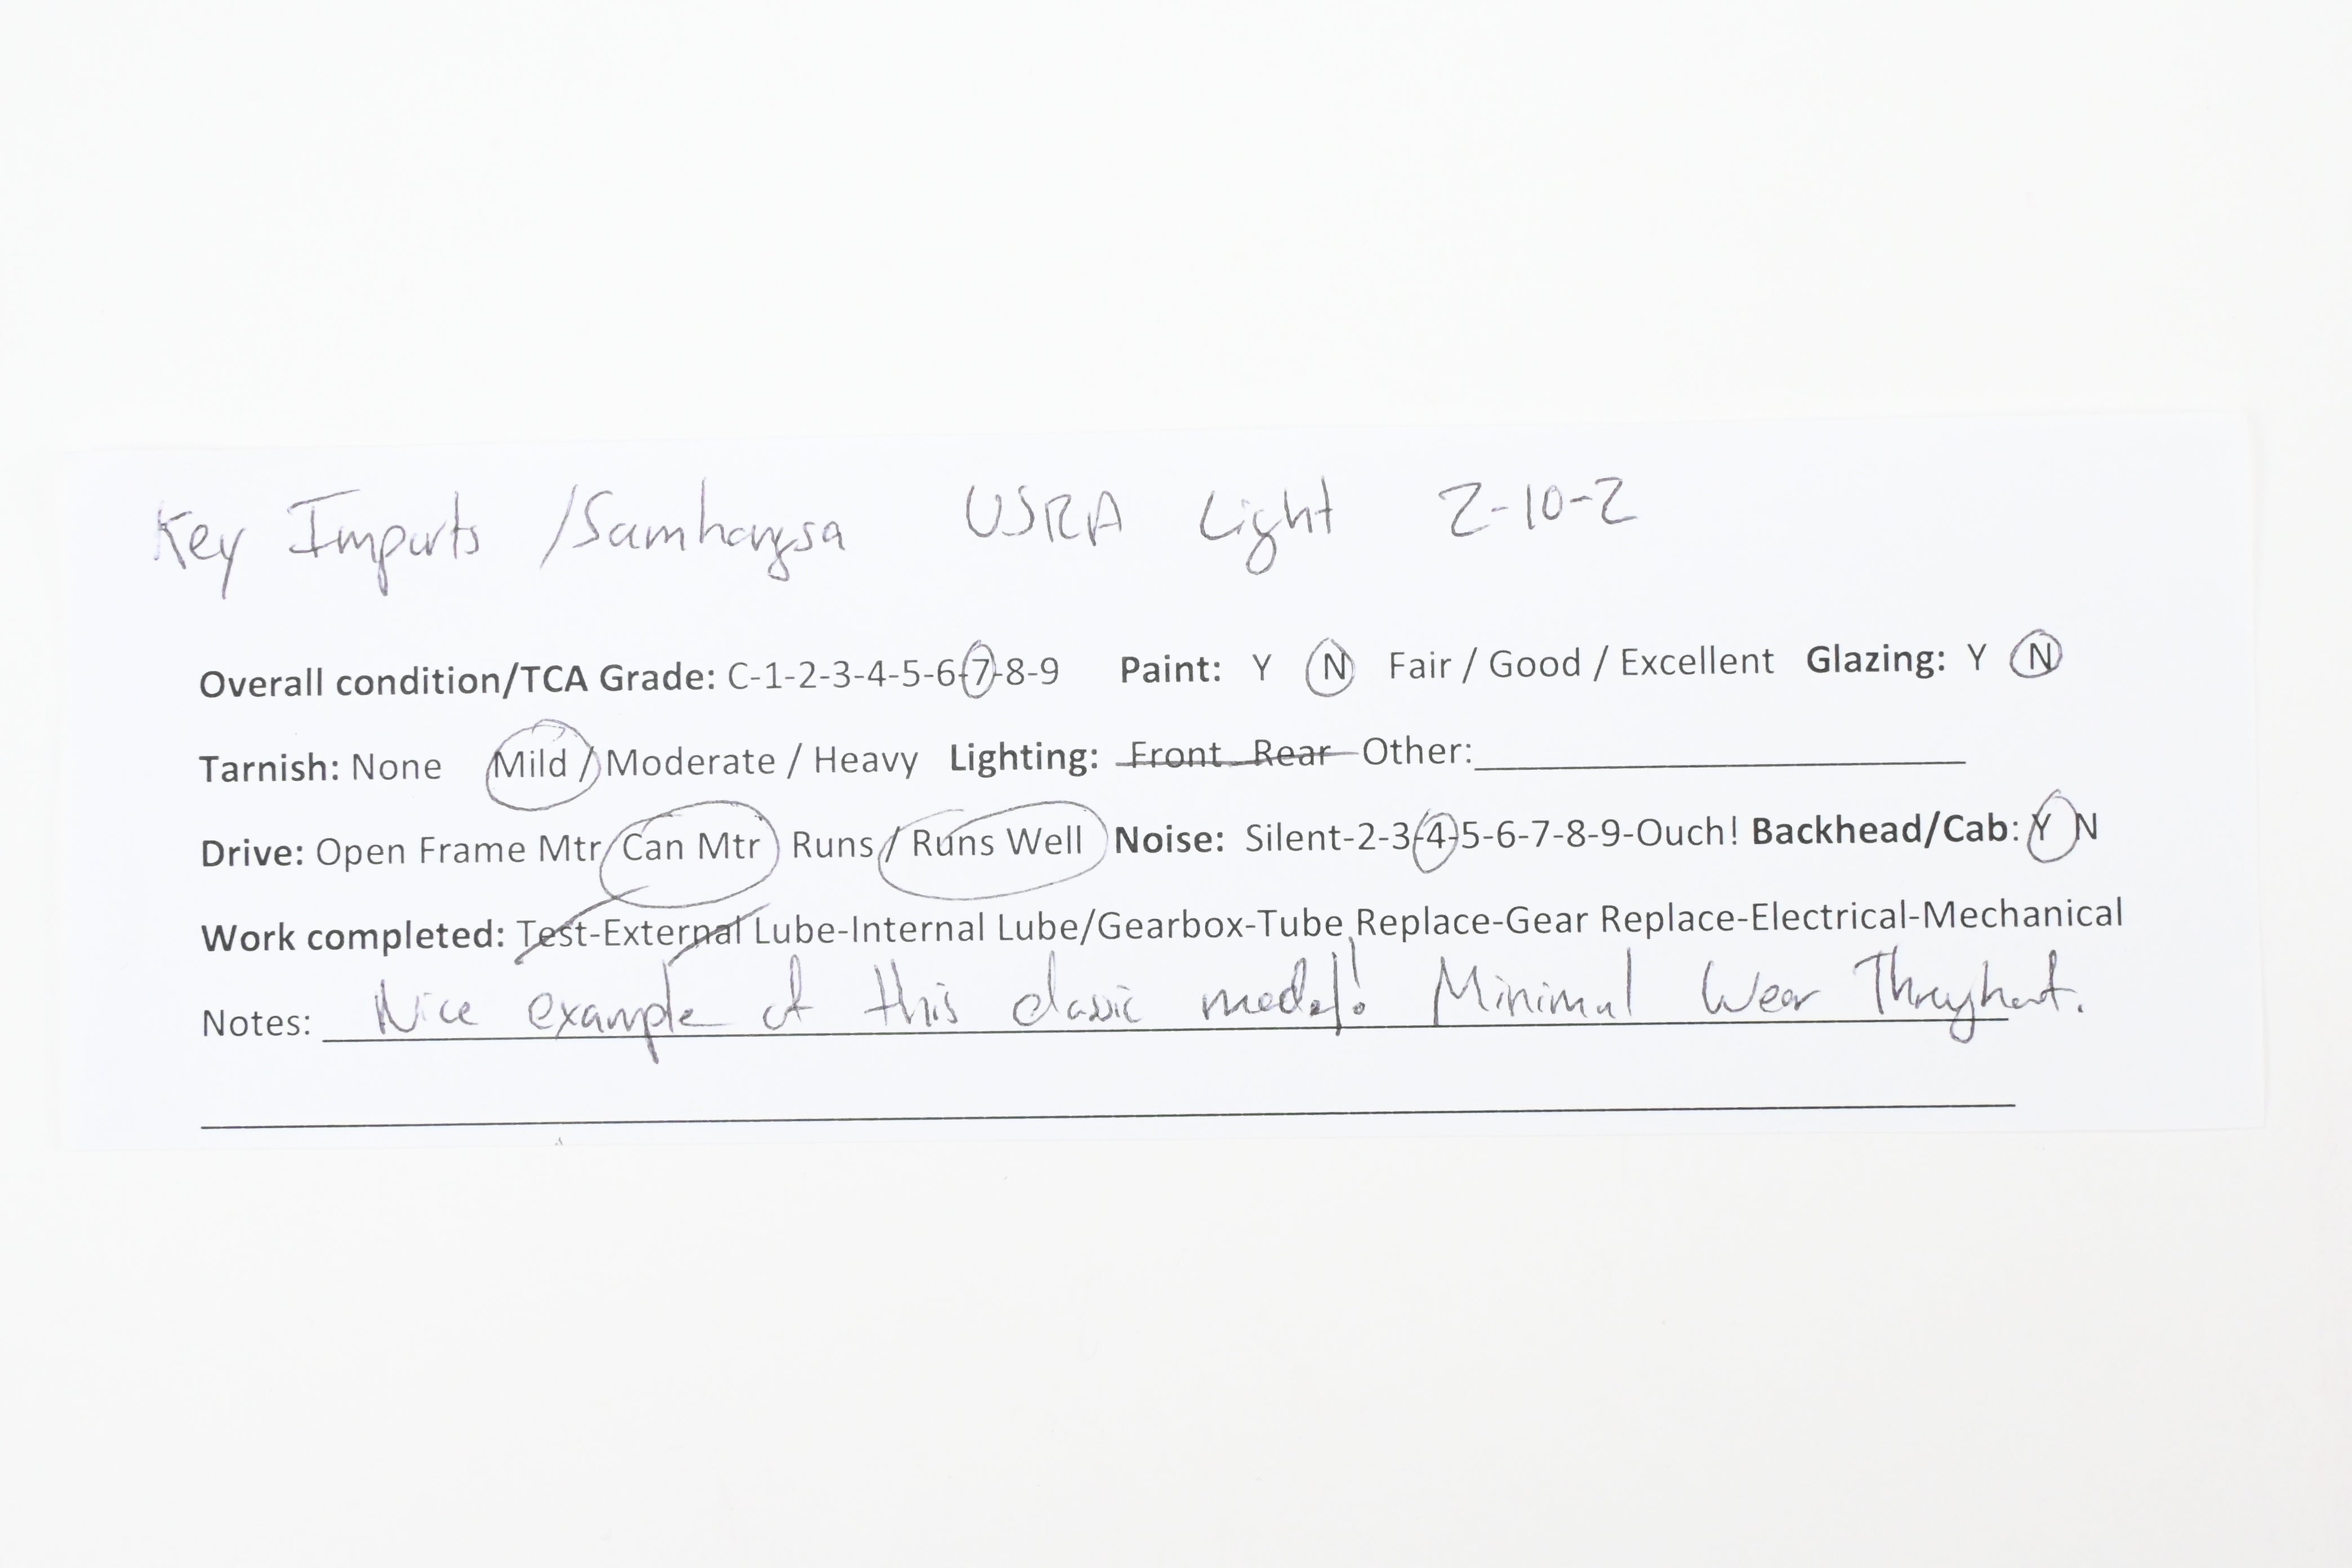 Key Imports /Samhongsa USRA Light 2-10-2
Overall condition/TCA Grade: C-1-2-3-4-5-6-7-8-9 Paint: Y N Fair / Good / Excellent Glazing: Y N
Tarnish: None Mild / Moderate / Heavy Lighting: Front Rear Other:
Drive: Open Frame Mtr/Can Mtr Runs / Runs Well Noise: Silent-2-3-4-5-6-7-8-9-Ouch! Backhead/Cab: Y N
Work completed: Test-External Lube-Internal Lube/Gearbox-Tube Replace-Gear Replace-Electrical-Mechanical
Notes: Nice example of this classic model! Minimal Wear Throughout.